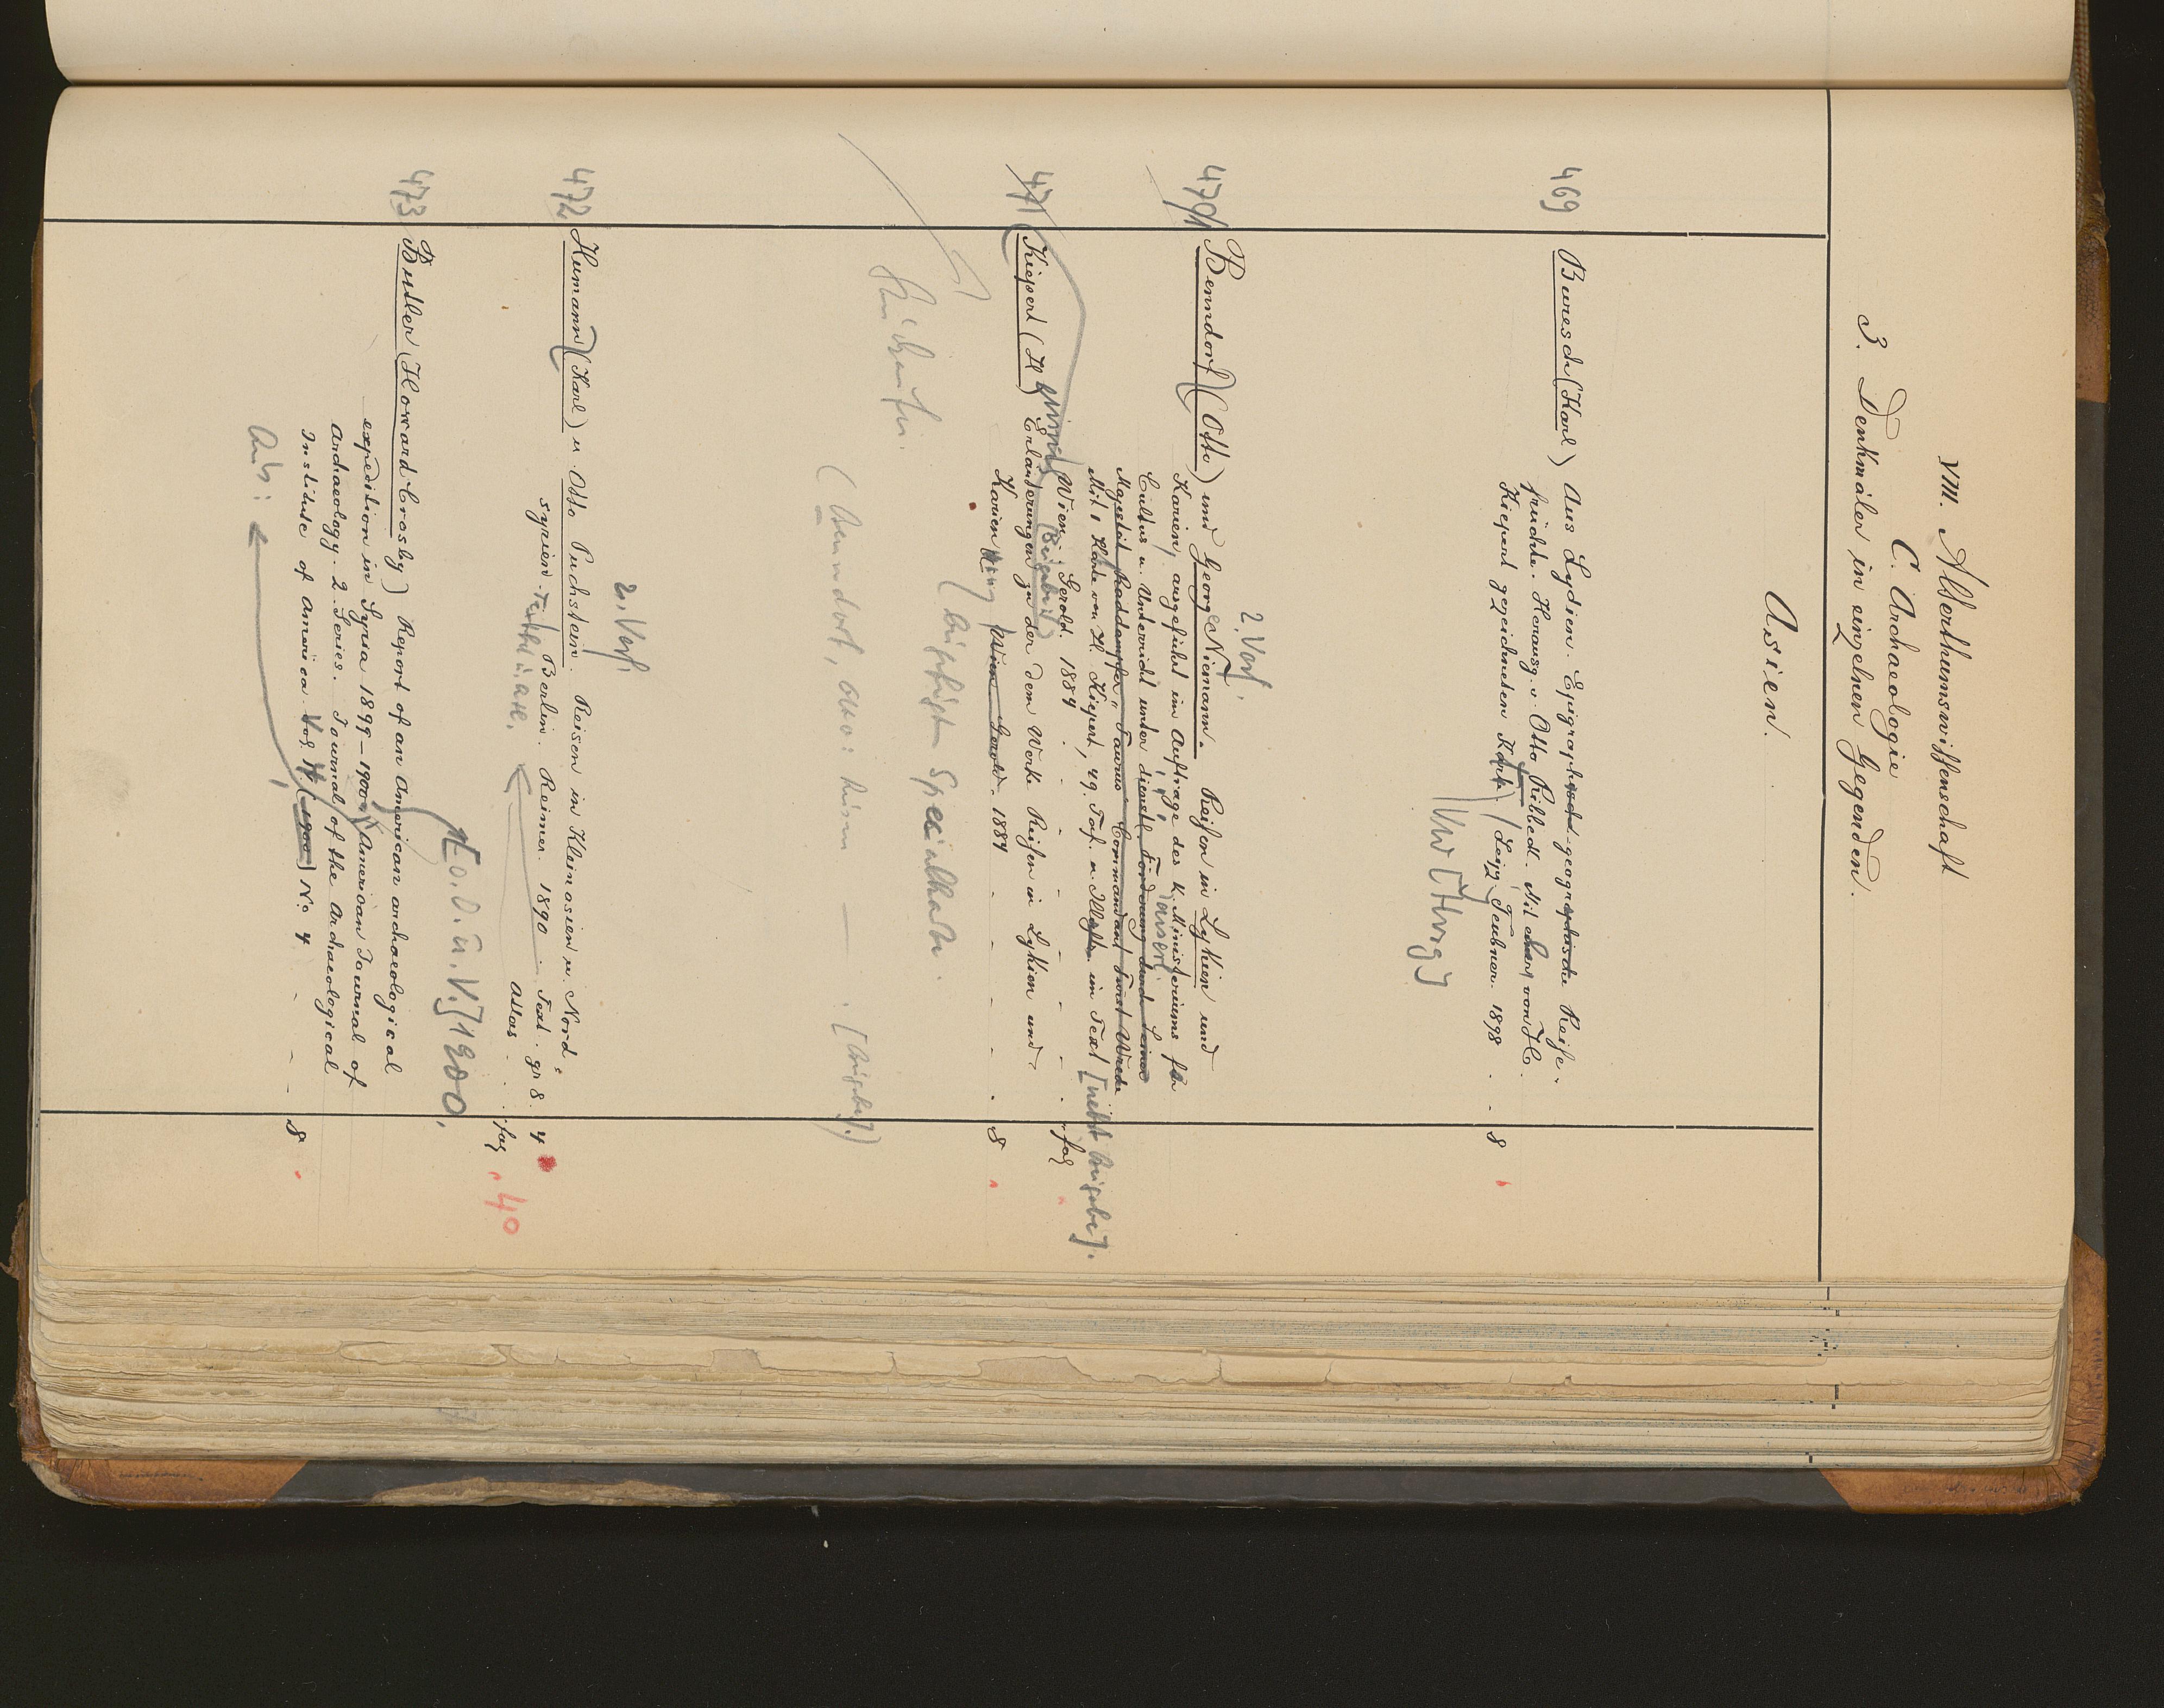 VIII. Alterthumswissenschaft
C. Archaeologie
3. Denkmäler in einzelnen Gegenden.
Asien.
469 Buresch (Karl) Aus Lydien. Epigraphisch-geographische Reise-
früchte. Herausg. v. Otto Ribbeck. Mit von H.
Kiepert gezeichneten Karte. Leipz. Teubner. 1898 8
2. Verf.
470/1 Benndorf (Otto) und Georg Niemann. Reisen in Lykien und
Karien, ausgeführt im Auftrage des k. k. Ministeriums für
Cultus u. Unterricht unter dienstl. Förderung durch Seiner
Majestät Raddampfer „Taurus" Commandant Fürst Wrede
Mit 1 Karte von H. Kiepert, 49 Taf. u. im Text [nebst Beigabe].
Wien. Gerold. 1884 fol
471 Kiepert (H) Erläuterungen zu der dem Werke Reisen in Lykien und
Karien Wien Gerold. 1884 8
(beigefügten Specialkarte.
(Benndorf, Otto: Reisen — . [Beigabe].)
2. Verf.
472 Humann (Karl) u. Otto Puchstein. Reisen in Kleinasien u. Nord-
syrien. Berlin. Reimer. 1890. Text. gr 8. 4
Atlas fol 40
[o. O. u. V.] 1900.
473 Butler (Howard Crosby) Report of an American archaeological
expedition in Syria 1899-1900 American Journal of
Archaeology. 2. Series. Journal of the Archaeological
Institute of America Vol. IV (1900) No 4 8
Aus: